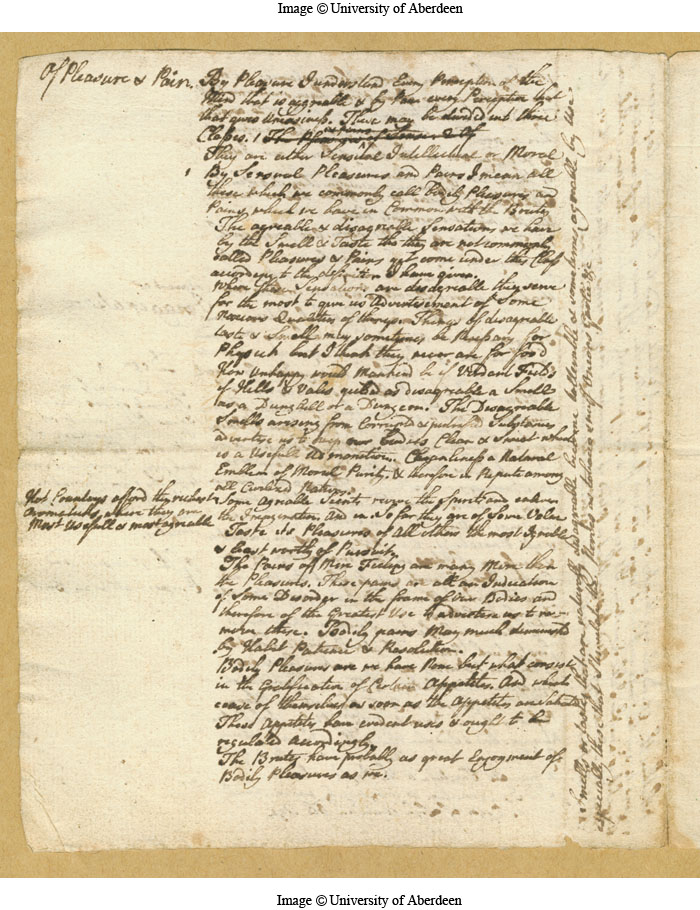 Image © University of Aberdeen
Of Pleasure & Pain.
By Pleasure I understand Every Perception of the
Mind that is agreable & by Pain every Perception that
that gives Uneasiness. These may be divided into three
Classes. 1 The of Sense 2 Of
They are either Sensual Intellectual or Moral
1 By Sensual Pleasures and Pains I mean all
these which we commonly call bodily Pleasures and
Pains, which we have in Common with the Brutes
The agreable & disagreable Sensations we have
by the Smell & Taste tho they are not commonly
called Pleasures & Pains yet come under this Class
according to the definition I have given.
Where these Sensations are disagreable they serve
for the most to give us Advertisement of Some
Noxious Qualities of things. Things of disagreable
taste & Smell may sometimes be Necessary for
Physick but I think they never are for food
How Unhappy would Mankind be if Verdant Fields
if Hills & Vales yielded as disagreable a Smell
as a Dunghill or a Dungeon. The Disagreable
Smells arising from Corrupted & putrified Substances
advertise us to keep our bodies Clean & Sweet which
is a Usefull Admonition. Cleanliness a Natural
Emblem of Moral Purity, & therefore in Repute among
all Civilized Nations.
Hot Countrys afford the richest
Aromaticks, where they are
Most Usefull as most agreable
Some agreable Scents revive the Spirits and enliven
the Imagination. And in So far they are of Some Value
Taste its Pleasures of All others the most Ignoble
& least worthy of Pursuit,
The Pains of Mere Feeling are many More than
the Pleasures. These pains are all an Indication
of Some Disorder in the frame of Our Bodies and
therefore of the Greatest Use to advertise us to re-
move these. Bodily pains May much diminished
by Habit Patience & Resolution.
Bodily Pleasures are we have None but what consist
in the Gratification of Certain Appetites. And which
cease of themselves as soon as the Appetites are
These Appetites have evident uses & ought to be
regulated accordingly.
The Brutes have probably as great Enjoyment of
Bodily Pleasures as we.
Smells or tastes that are naturally disagreable become tollerable & sometimes agreable by use
especially those that Stimulate the Nerves as tobacco snuf Onions Garlic &c
Image © University of Aberdeen